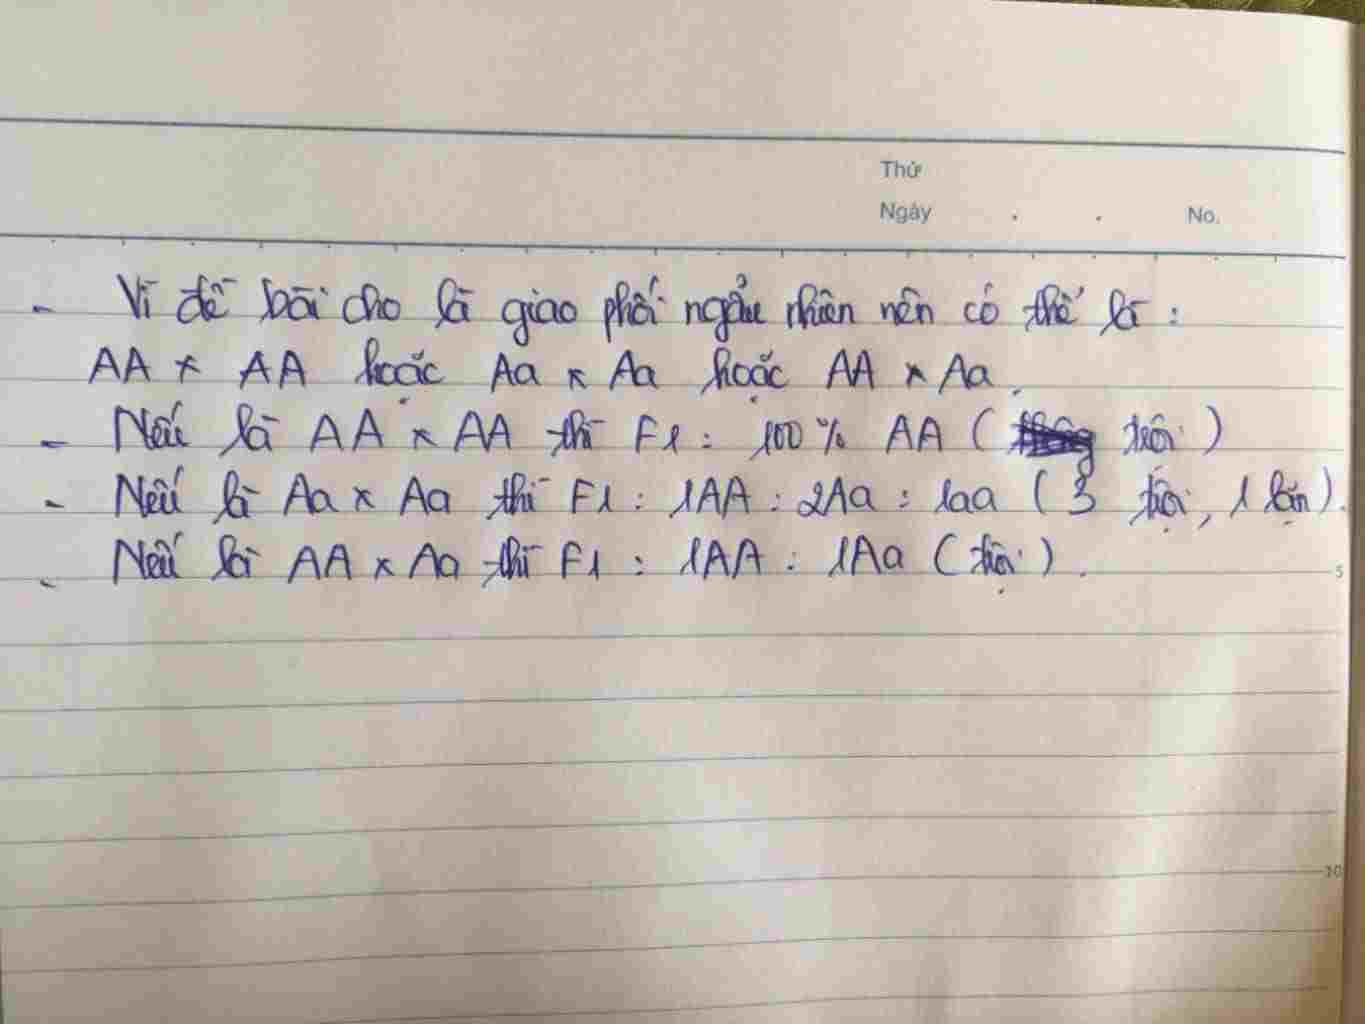 Thứ
Ngày . . No.
- Vì đề bài cho là giao phối ngẫu nhiên nên có thể là :
AA x AA hoặc Aa x Aa hoặc AA x Aa.
- Nếu là AA x AA thì F1 : 100 % AA ( trội )
- Nếu là Aa x Aa thì F1 : 1AA : 2Aa : 1aa ( 3 trội, 1 lặn ).
- Nếu là AA x Aa thì F1 : 1AA : 1Aa ( trội ).
5
10